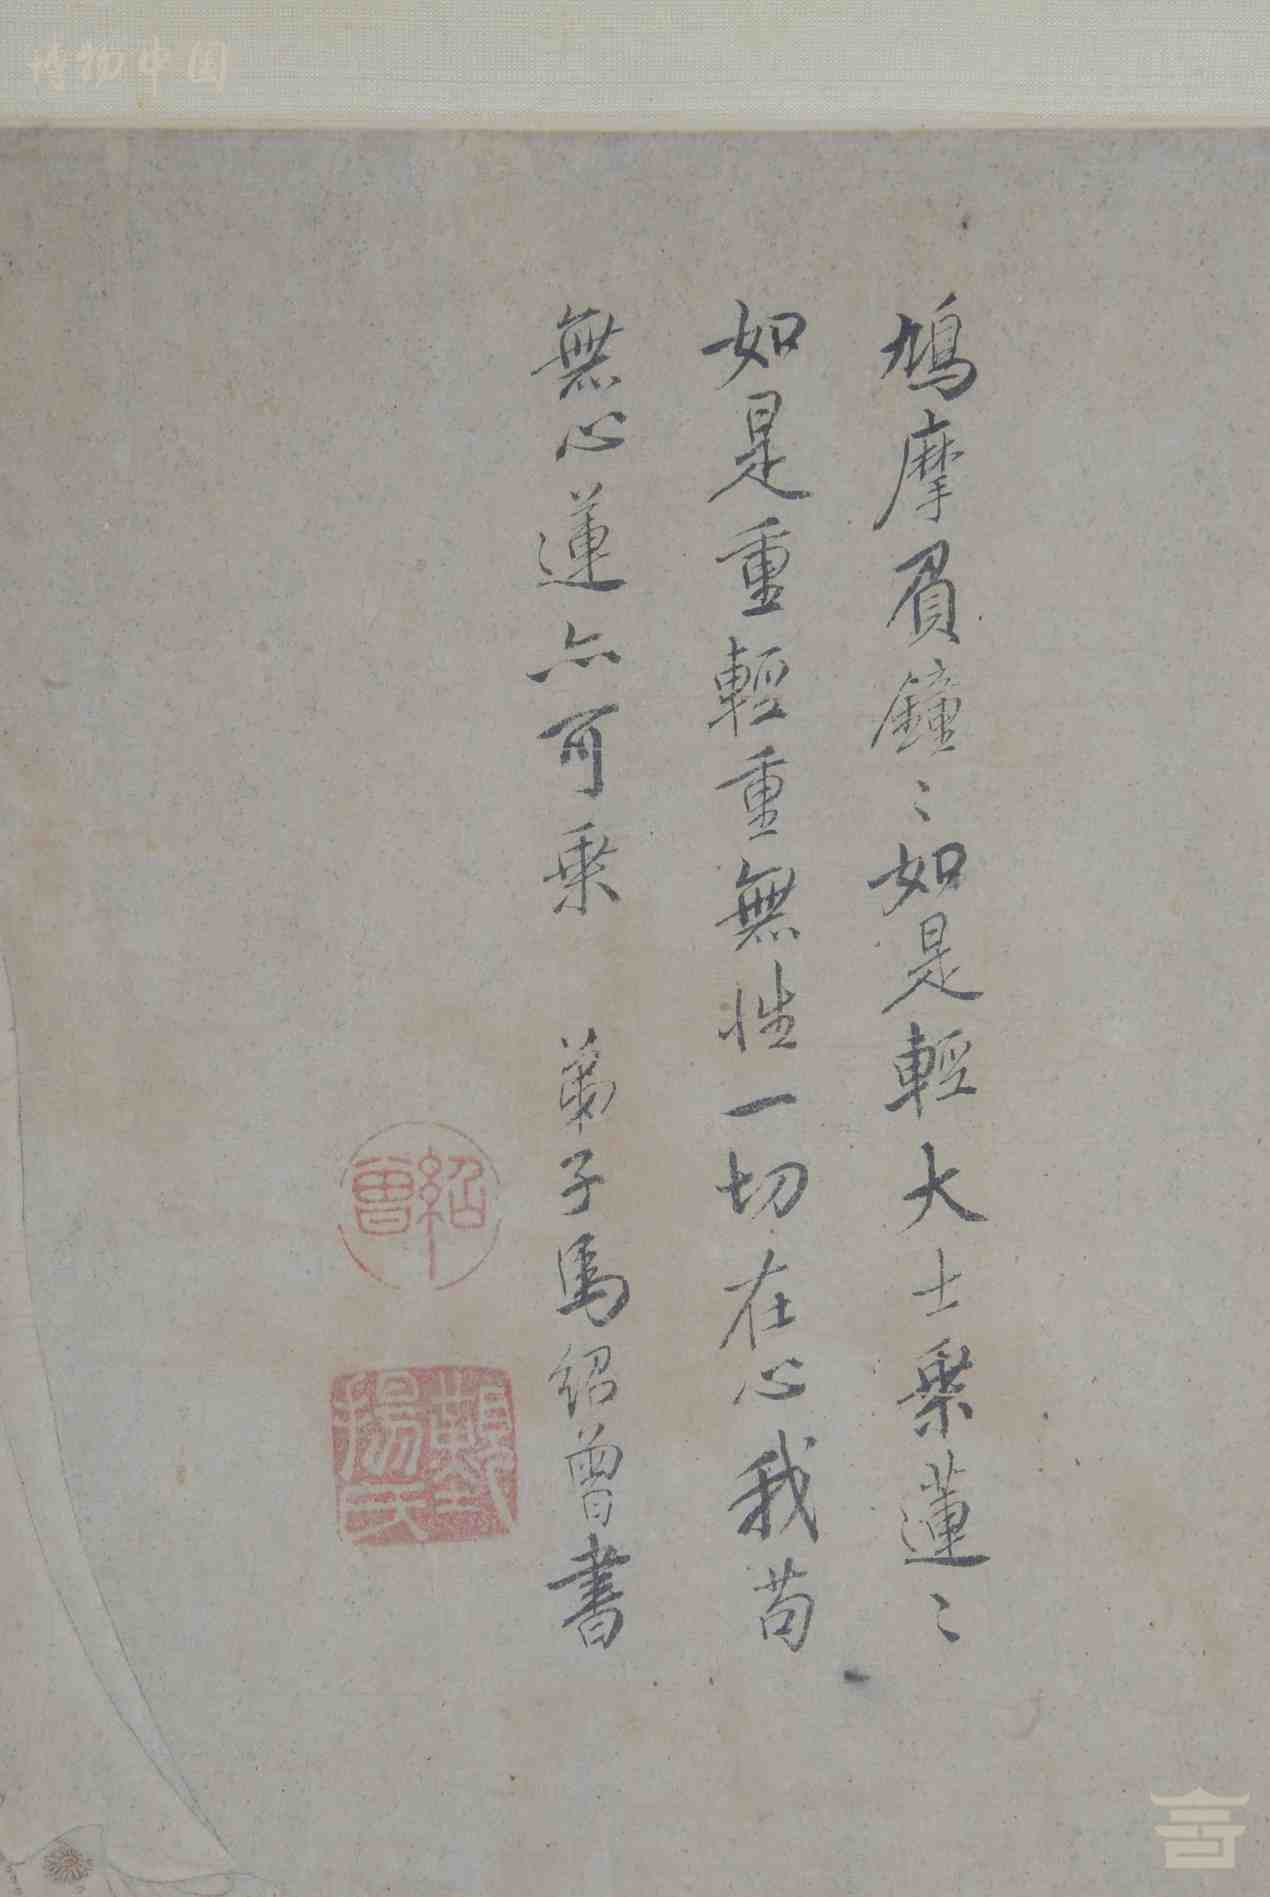 博物中国
鳩摩負鐘〻如是輕大士乘蓮〻
如是重輕重無性一切在心我苟
無心蓮亦可乘 弟子馬紹曾書
紹曾